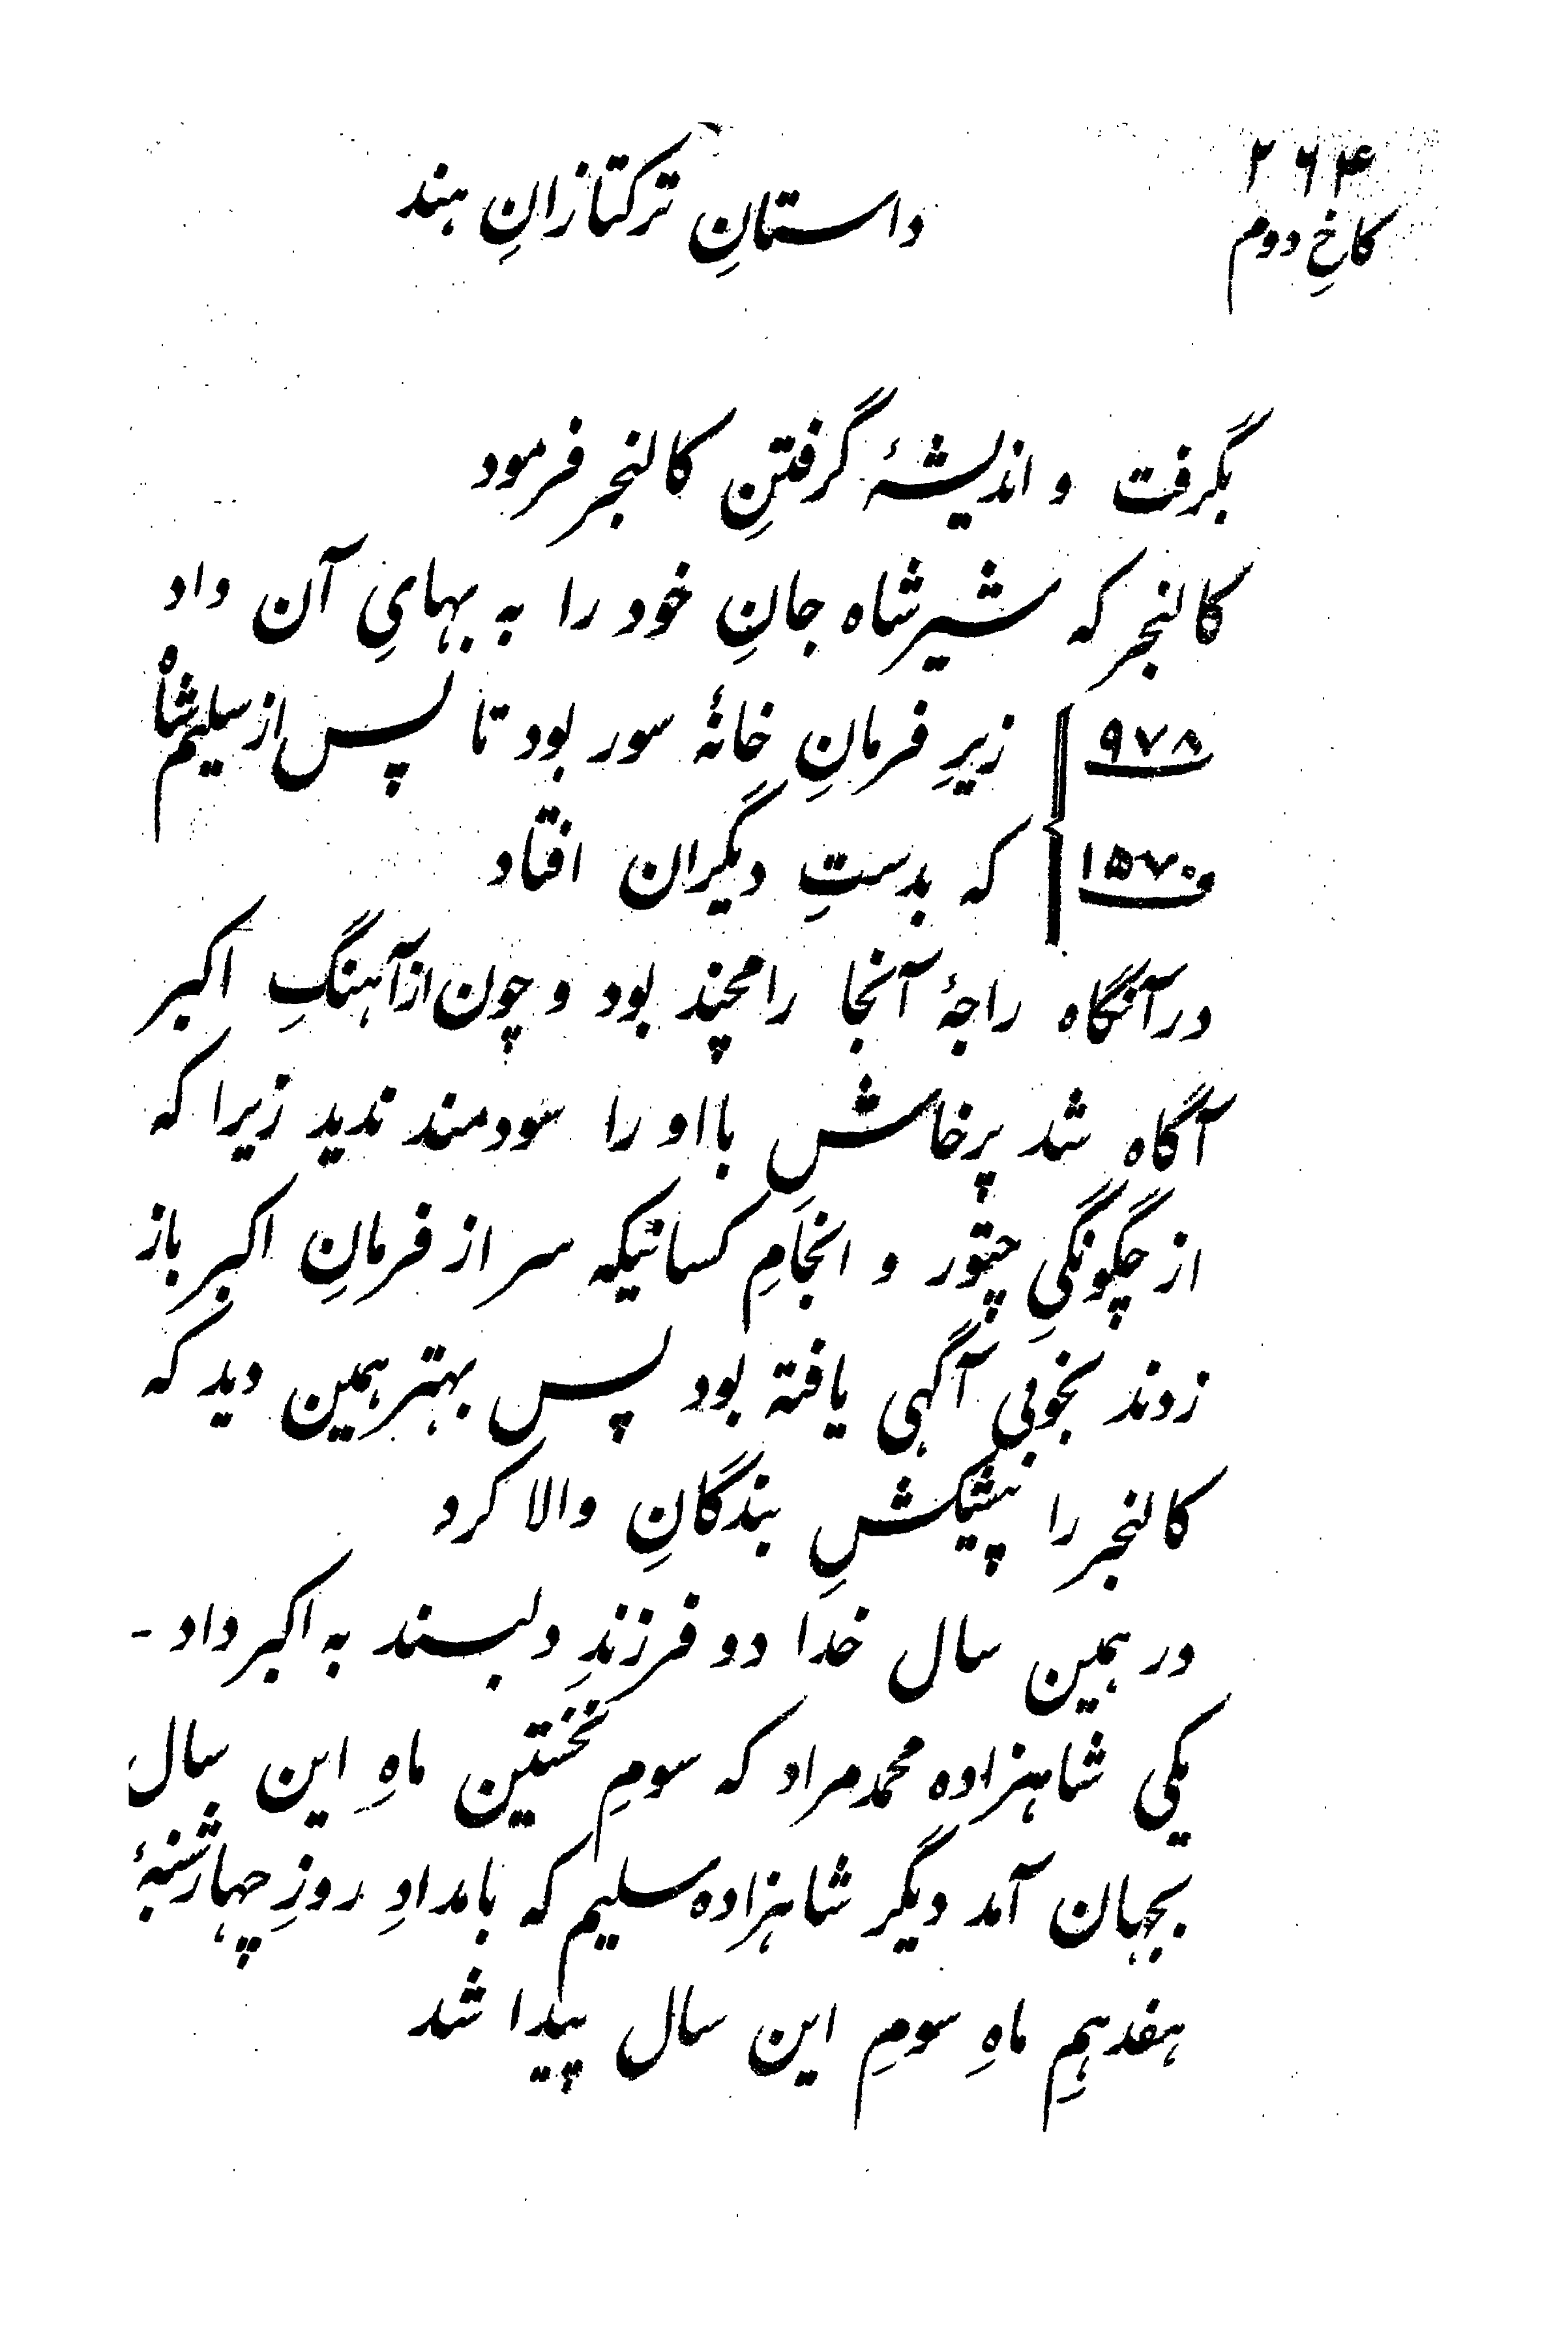 ۲۶۴
کاخِ دوم
داستانِ ترکتازانِ هند
بگرفت و اندیشۀ گرفتنِ کالنجر فرمود
کالنجر که شیرشاه جانِ خود را به بهایِ آن داد
۹۷۸ زیرِ فرمانِ خانۀ سور بود تا پس از سلیم شاه
۱۵۷۰ که بدستِ دیگران افتاد
درآنگاه راجۀ آنجا رامچند بود و چون ازآهنگِ اکبر
آگاه شد پرخاشِ بااو را سودمند ندید زیرا که
از چگونگیِ چتور و انجامِ کسانیکه سر از فرمانِ اکبر باز
زدند بخوبی آگهی یافته بود پس بهتر همین دید که
کالنجر را پیشکشِ بندگانِ والا کرد
در همین سال خدا دو فرزندِ دلبند به اکبر داد -
یکی شاهزاده محمد مراد که سومِ نخستین ماهِ این سال
بجهان آمد دیگر شاهزاده سلیم که بامدادِ روزِ چهارشنبۀ
هفدهمِ ماهِ سومِ این سال پیدا شد